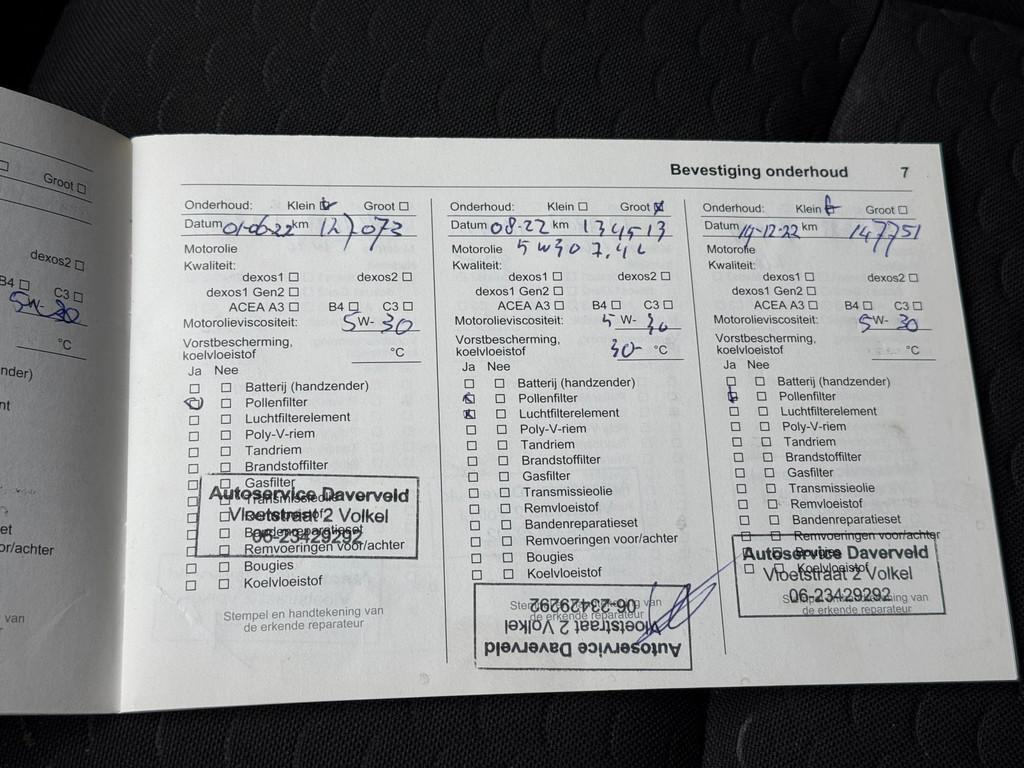 Groot ☐
dexos2 ☐
B4 ☐ C3 ☐
5W-30
°C
nder)
nt
et
or/achter
van
Bevestiging onderhoud 7
Onderhoud: Klein ☒ Groot ☐
Datum 01-06-22 km 127073
Motorolie
Kwaliteit:
dexos1 ☐ dexos2 ☐
dexos1 Gen2 ☐
ACEA A3 ☐ B4 ☐ C3 ☐
Motorolieviscositeit: 5W-30
Vorstbescherming,
koelvloeistof °C
Ja Nee
☐ ☐ Batterij (handzender)
☒ ☐ Pollenfilter
☐ ☐ Luchtfilterelement
☐ ☐ Poly-V-riem
☐ ☐ Tandriem
☐ ☐ Brandstoffilter
☐ ☐ Gasfilter
☐ ☐ Transmissieolie
☐ ☐ Remvloeistof
☐ ☐ Bandenreparatieset
☐ ☐ Remvoeringen voor/achter
☐ ☐ Bougies
☐ ☐ Koelvloeistof
Autoservice Daverveld
Vloetstraat 2 Volkel
06-23429292
Stempel en handtekening van
de erkende reparateur
Onderhoud: Klein ☐ Groot ☒
Datum 08-22 km 134513
Motorolie 5W30 7,4L
Kwaliteit:
dexos1 ☐ dexos2 ☐
dexos1 Gen2 ☐
ACEA A3 ☐ B4 ☐ C3 ☐
Motorolieviscositeit: 5W-30
Vorstbescherming,
koelvloeistof 30- °C
Ja Nee
☐ ☐ Batterij (handzender)
☒ ☐ Pollenfilter
☒ ☐ Luchtfilterelement
☐ ☐ Poly-V-riem
☐ ☐ Tandriem
☐ ☐ Brandstoffilter
☐ ☐ Gasfilter
☐ ☐ Transmissieolie
☐ ☐ Remvloeistof
☐ ☐ Bandenreparatieset
☐ ☐ Remvoeringen voor/achter
☐ ☐ Bougies
☐ ☐ Koelvloeistof
Stempel en handtekening van
de erkende reparateur
Autoservice Daverveld
Vloetstraat 2 Volkel
06-23429292
Onderhoud: Klein ☒ Groot ☐
Datum 14-12-22 km 147751
Motorolie
Kwaliteit:
dexos1 ☐ dexos2 ☐
dexos1 Gen2 ☐
ACEA A3 ☐ B4 ☐ C3 ☐
Motorolieviscositeit: 5W-30
Vorstbescherming,
koelvloeistof °C
Ja Nee
☐ ☐ Batterij (handzender)
☒ ☐ Pollenfilter
☐ ☐ Luchtfilterelement
☐ ☐ Poly-V-riem
☐ ☐ Tandriem
☐ ☐ Brandstoffilter
☐ ☐ Gasfilter
☐ ☐ Transmissieolie
☐ ☐ Remvloeistof
☐ ☐ Bandenreparatieset
☐ ☐ Remvoeringen voor/achter
☐ ☐ Bougies
☐ ☐ Koelvloeistof
Autoservice Daverveld
Vloetstraat 2 Volkel
06-23429292
Stempel en handtekening van
de erkende reparateur